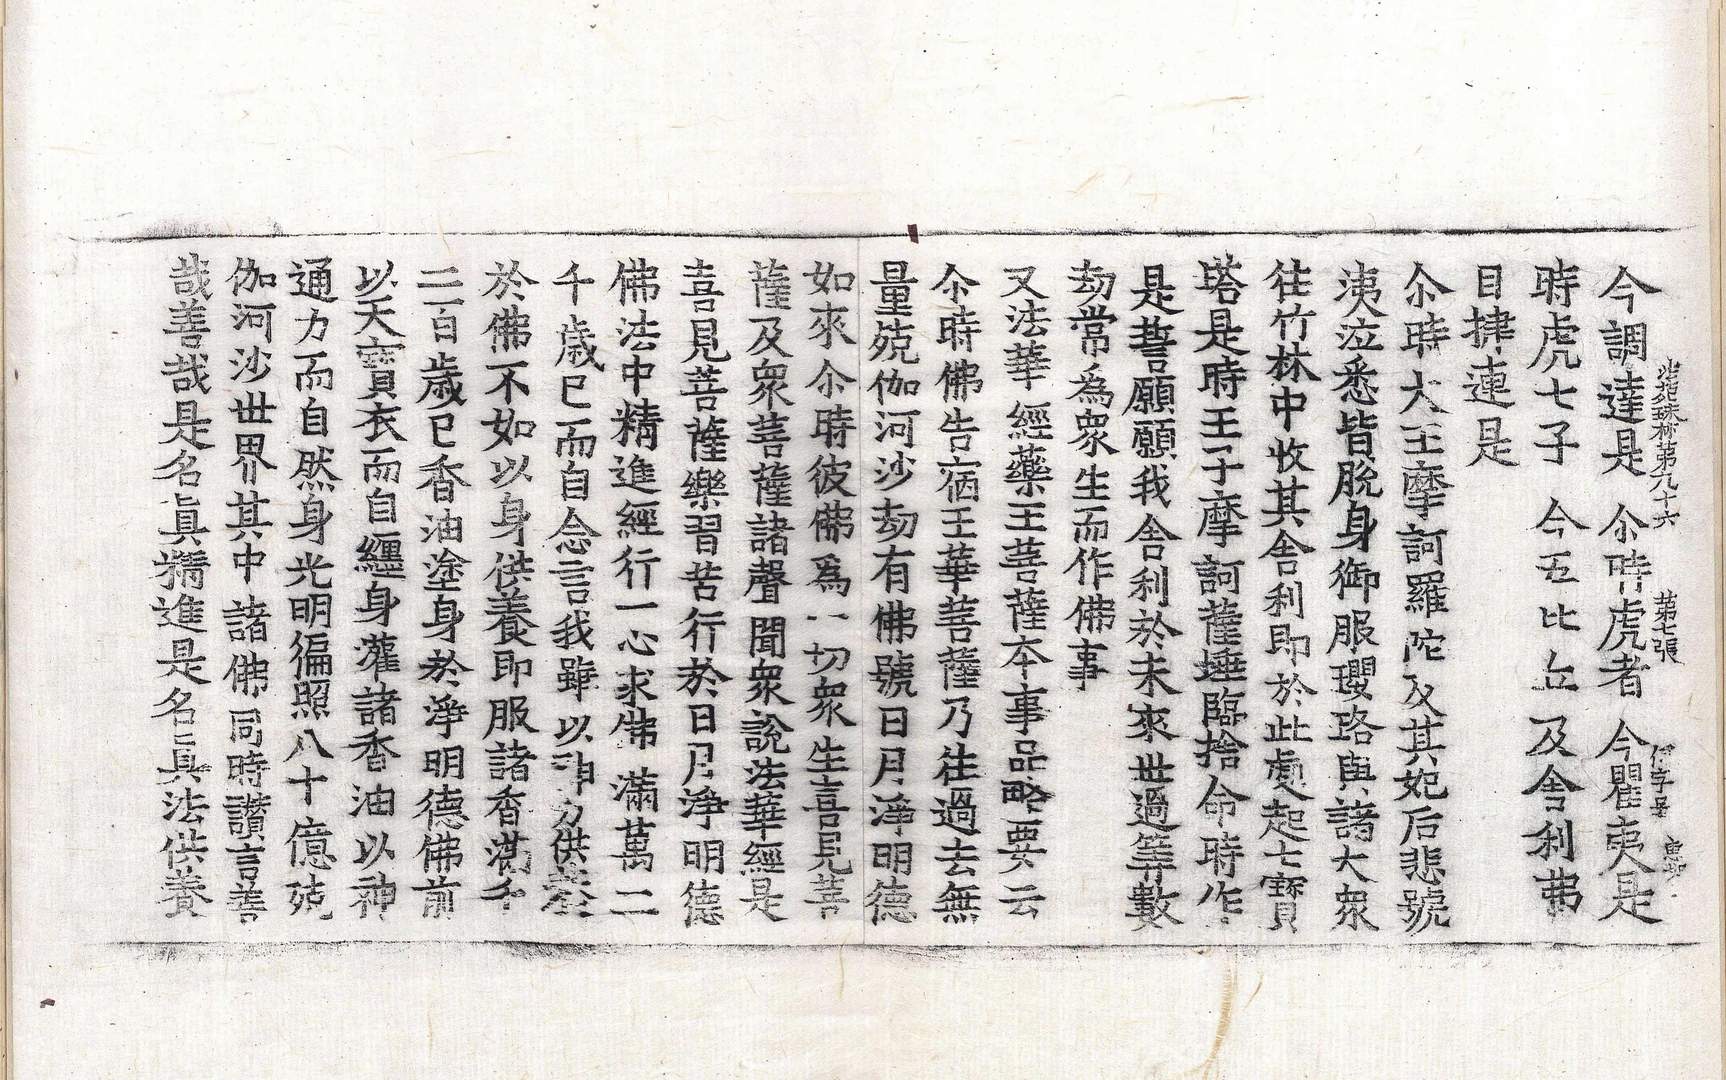 法苑珠林第九十六 第七張 伊字号
今調達是 尒時虎者 今瞿夷是
時虎七子 今五比丘 及舍利弗
目揵連是
尒時大王摩訶羅陀及其妃后悲號
洟泣悉皆脫身御服瓔珞與諸大衆
往竹林中收其舍利即於此處起七寶
塔是時王子摩訶薩埵臨捨命時作
是誓願願我舍利於未來世過筭數
劫常爲衆生而作佛事
又法華經藥王菩薩本事品略要云
尒時佛告宿王華菩薩乃往過去無
量殑伽河沙劫有佛號日月淨明德
如來尒時彼佛爲一切衆生喜見菩
薩及衆菩薩諸聲聞衆說法華經是
喜見菩薩樂習苦行於日月淨明德
佛法中精進經行一心求佛滿萬二
千歲已而自念言我雖以神力供養
於佛不如以身供養即服諸香滿千
二百歲已香油塗身於淨明德佛前
以天寶衣而自纏身灌諸香油以神
通力而自然身光明徧照八十億殑
伽河沙世界其中諸佛同時讚言善
哉善哉是名真精進是名真法供養